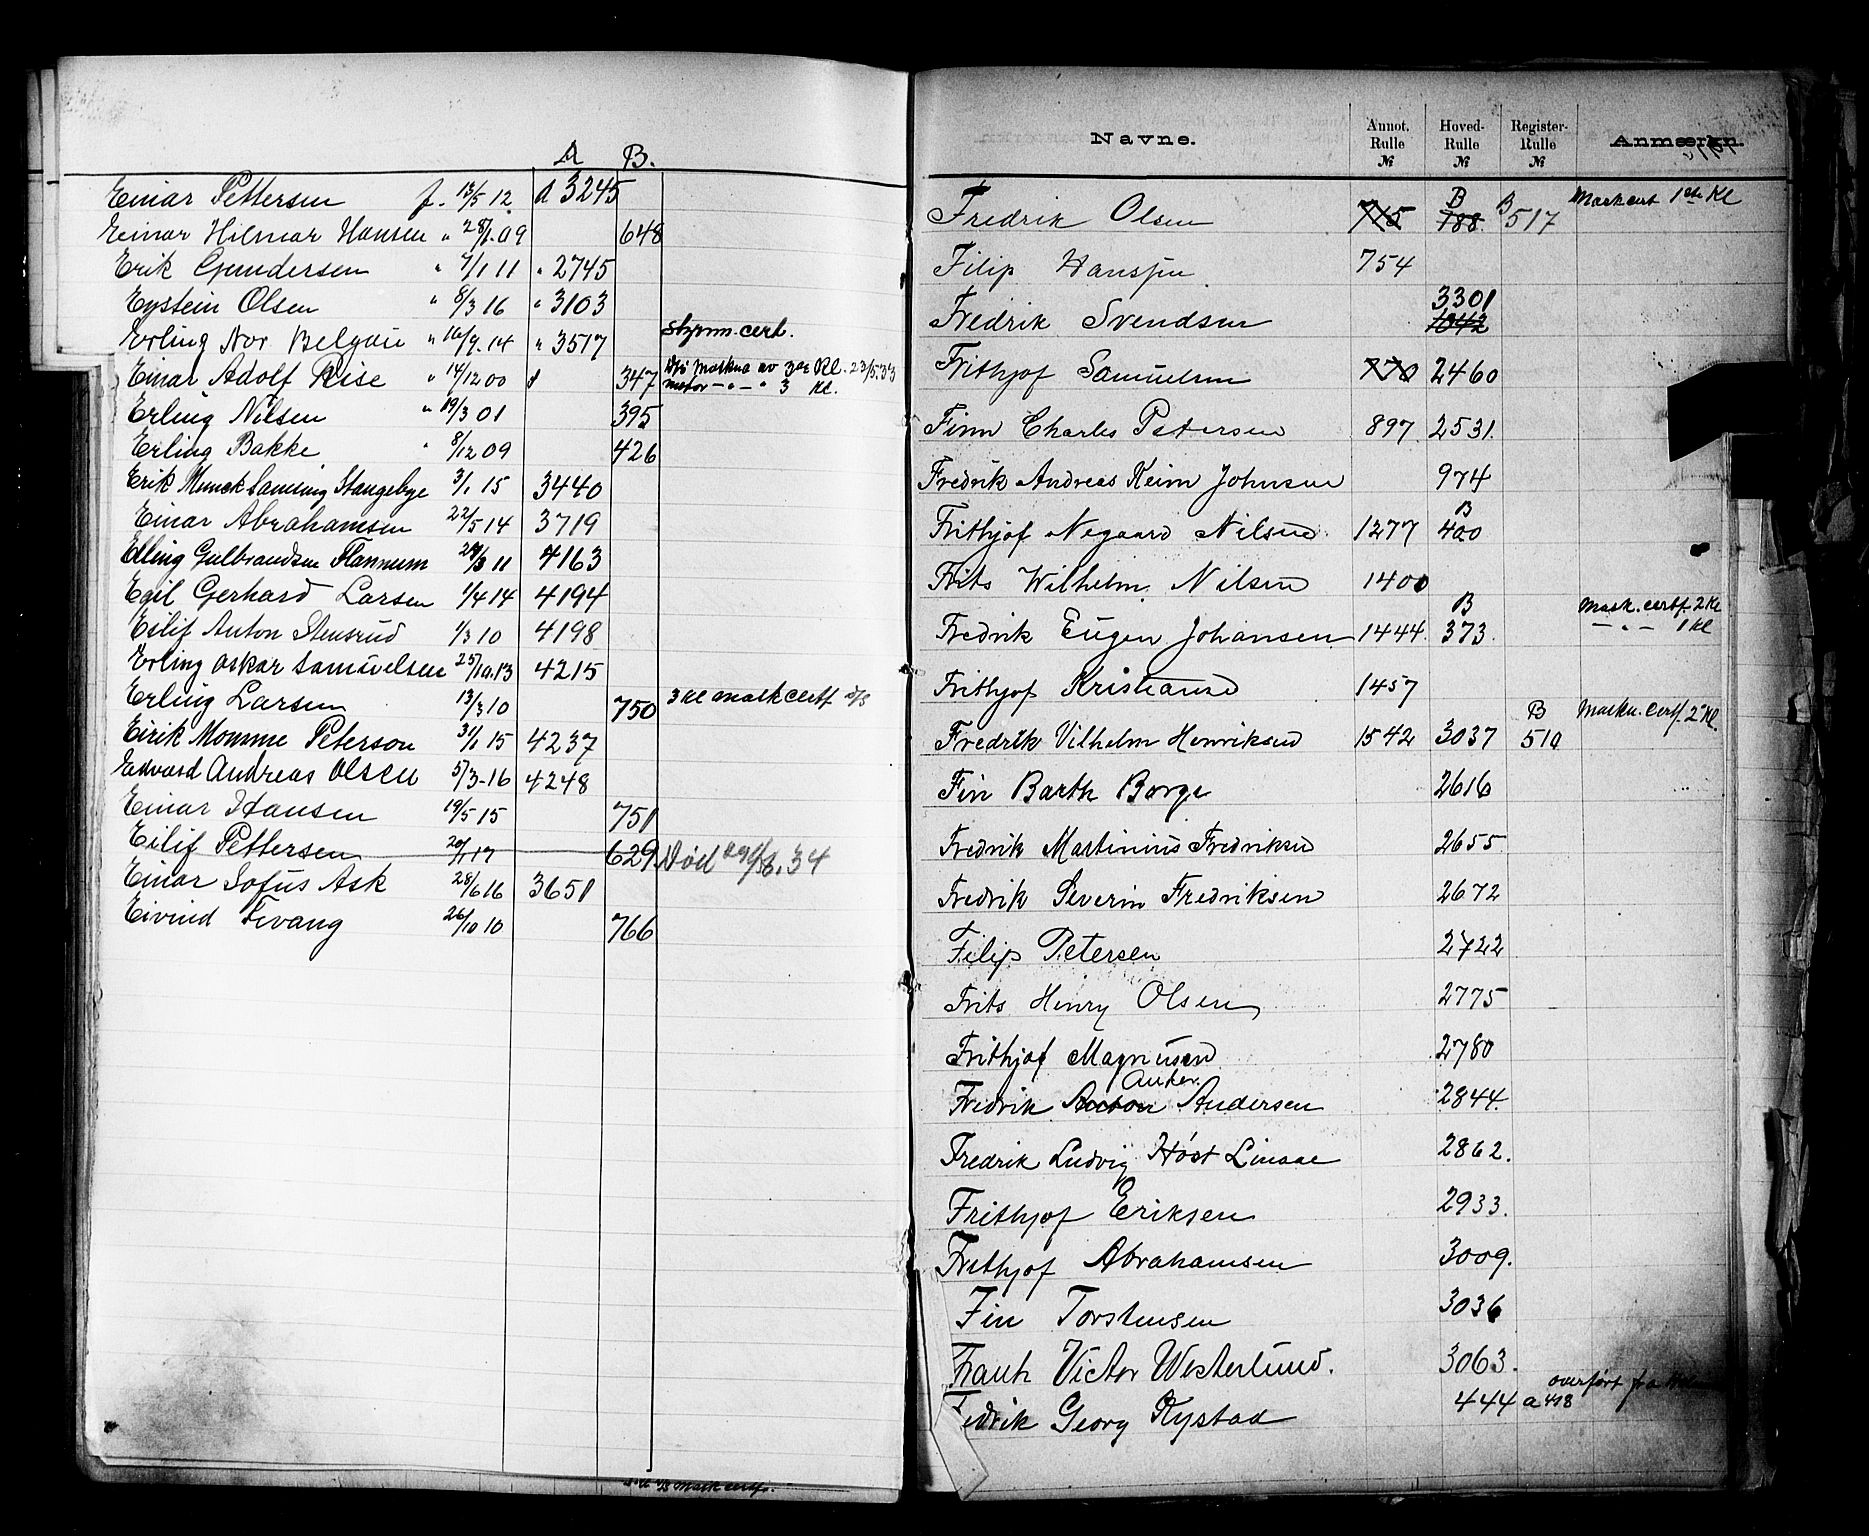 A B.
Einar Pettersen f. 13/5 12. A 3245
Einar Hilmar Hansen " 28/1.09 648
Erik Gundersen " 7/1 11 " 2745
Eystein Olsen " 8/3 16 " 3103
Erling Nor Belgau " 16/9.14 " 3517 styrm. cert.
Einar Adolf Riise " 14/12 00 347 3 Kl. 23/5.33
motor — " — " 3 Kl.
Erling Nilsen " 19/3 01 395
Erling Bakke " 8/12 09 426
Erik Munck Lansing Stangebye 3/1 15 3440
Einar Abrahamsen 22/5 14 3719
Elling Gulbrandsen Flannum 11 4163
Egil Gerhard Larsen 1/4 14 4194
Eilif Anton Stensrud 1/3 10 4198
Erling Oskar Samuelsen 25/10.13 4215
Erling Larsen 13/3 10 750 3 kl mask certf
Eirik Momme Peterson 31/1 15 4237
Edvard Andreas Olsen 5/3-16 4248
Einar Hansen 19/5 15 751
Eilif Pettersen 20/1 17 629 Død 34
Einar Sofus Ask 28/6 16 3651
Eivind Tvang 26/10 10 766
mask certf.
Navne. Annot. Rulle № Hoved- Rulle № Register- Rulle № Anmærkn.
Fredrik Olsen 715 B 788. B 517 Mask cert 1ste Kl
Filip Hansen 754
3301
Fredrik Svendsen 1042
Frithjof Samuelsen 770 2460
Finn Charles Petersen 897 2531.
Fredrik Andreas Keim Johnsen 974
B
Frithjof Negaard Nilsen 1277 400
Frits Wilhelm Nilsen 1400
B Mask. certf. 2 Kl
Fredrik Eugen Johansen 1444. 373. — " — 1 Kl
Frithjof Kristiansen 1457
B Maskn. certf 2 Kl.
Fredrik Vilhelm Henriksen 1542 3037 510
Fin Barth Borge 2616
Fredrik Martinius Fredriksen 2655
Fredrik Severin Fredriksen 2672
Filip Petersen 2722
Frits Henry Olsen 2775
Frithjof Magnusen 2780
Anker
Fredrik Anton Andersen 2844.
Fredrik Ludvig Høst Linaae 2862.
Frithjof Eriksen 2933.
Frithjof Abrahamsen 3009.
Fin Torstensen 3036
Frantz Victor Westerlund. 3063.
overført fra
Fredrik Georg Rystad 444 a 418